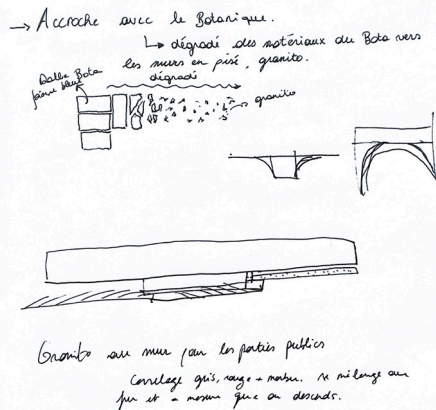 → Accroche avec le Botanique.
↳ dégradé des matériaux du Bota vers
les murs en pisé, granito.
Dalle Bota
pierre bleue
dégradé
granito
Granito au mur pour les parties publics
Carrelage gris, rouge + marbre. se mélange au
fur et a mesure que on descends.